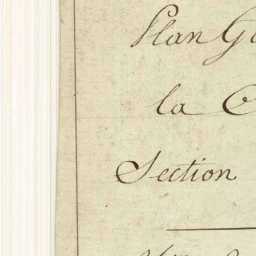 Plan G
la C
Section